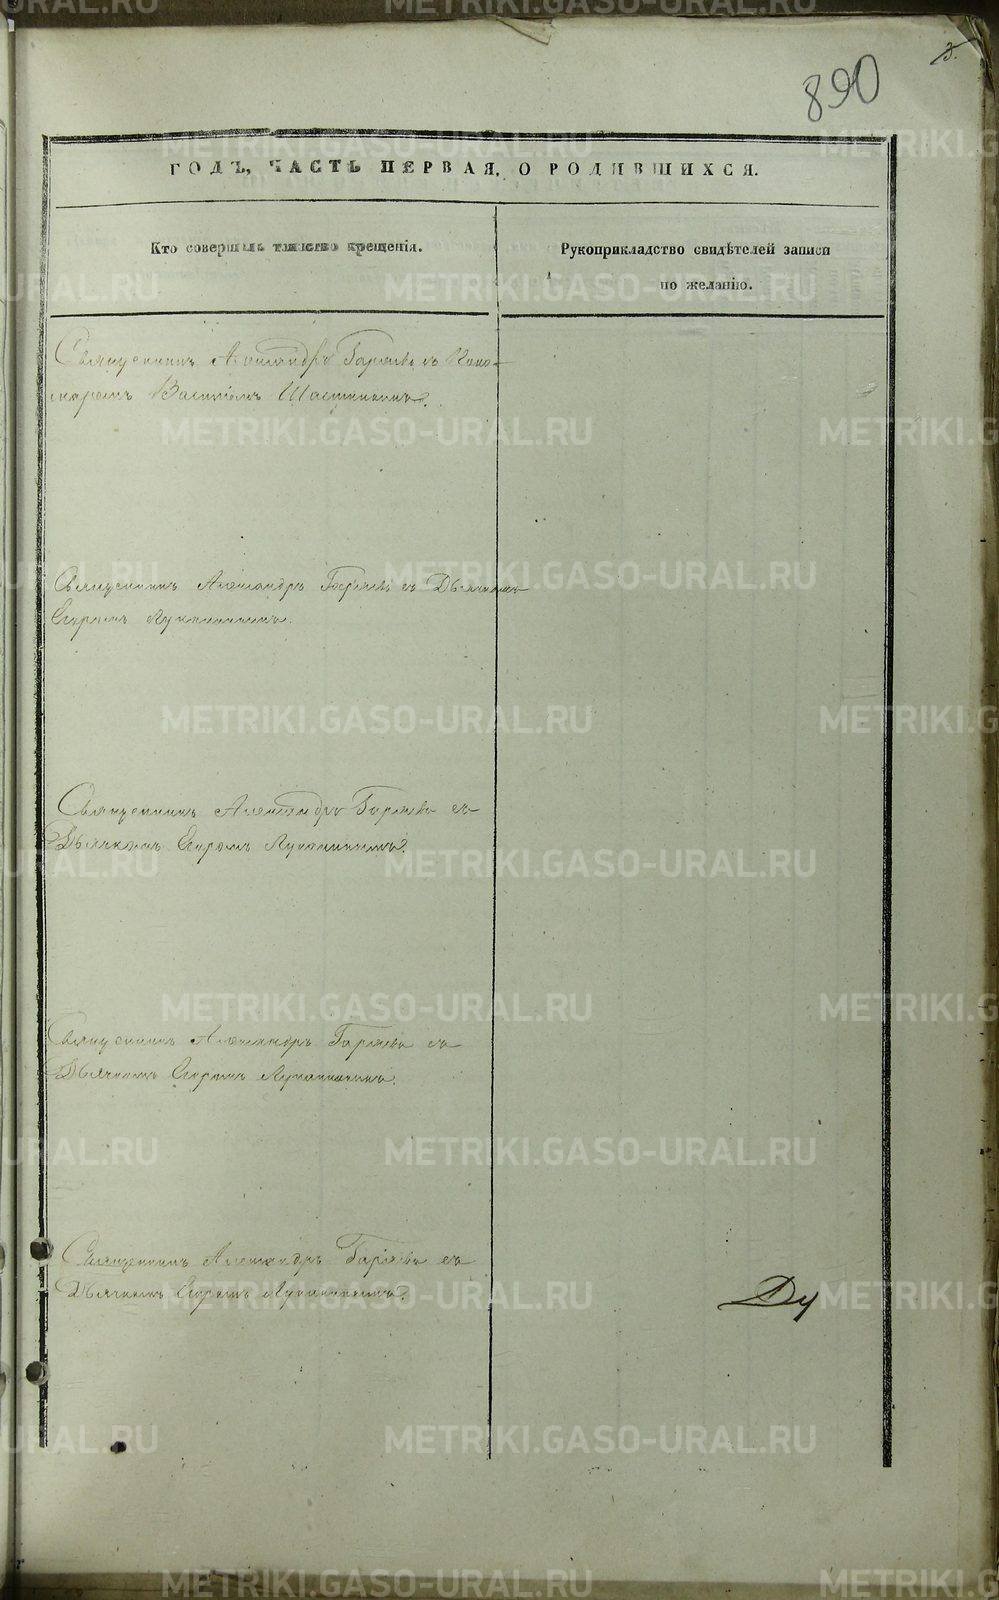 890
3.
ГОДЪ, ЧАСТЬ ПЕРВАЯ, О РОДИВШИХСЯ.
Кто совершалъ таинство крещенія.
Рукоприкладство свидѣтелей записи
по желанію.
Священникъ Александръ Гаряевъ съ Поно-
маремъ Василіемъ
Священникъ Александръ Гаряевъ съ Дьячкомъ
Егоромъ Лукановымъ.
Священникъ Александръ Гаряевъ съ
Дьячкомъ Егоромъ Лукановымъ.
Священникъ Александръ Гаряевъ съ
Дьячкомъ Егоромъ Лукановымъ.
Священникъ Александръ Гаряевъ съ
Дьячкомъ Егоромъ Лукановымъ.
METRIKI.GASO-URAL.RU